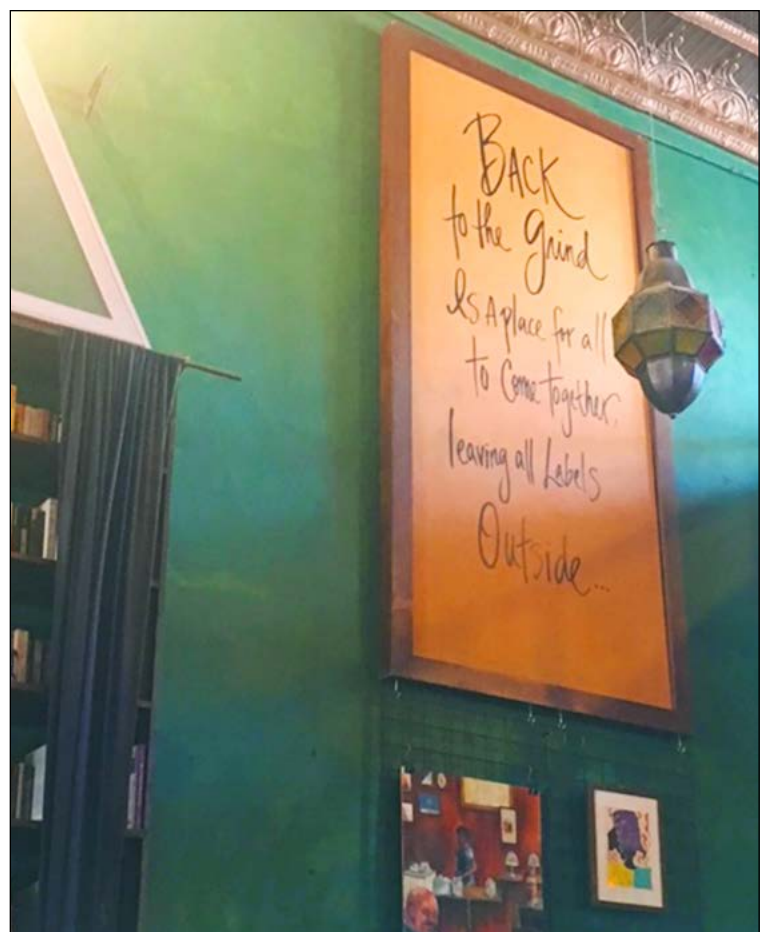 BACK
to the grind
Is A place for all
to Come together,
leaving all Labels
Outside...